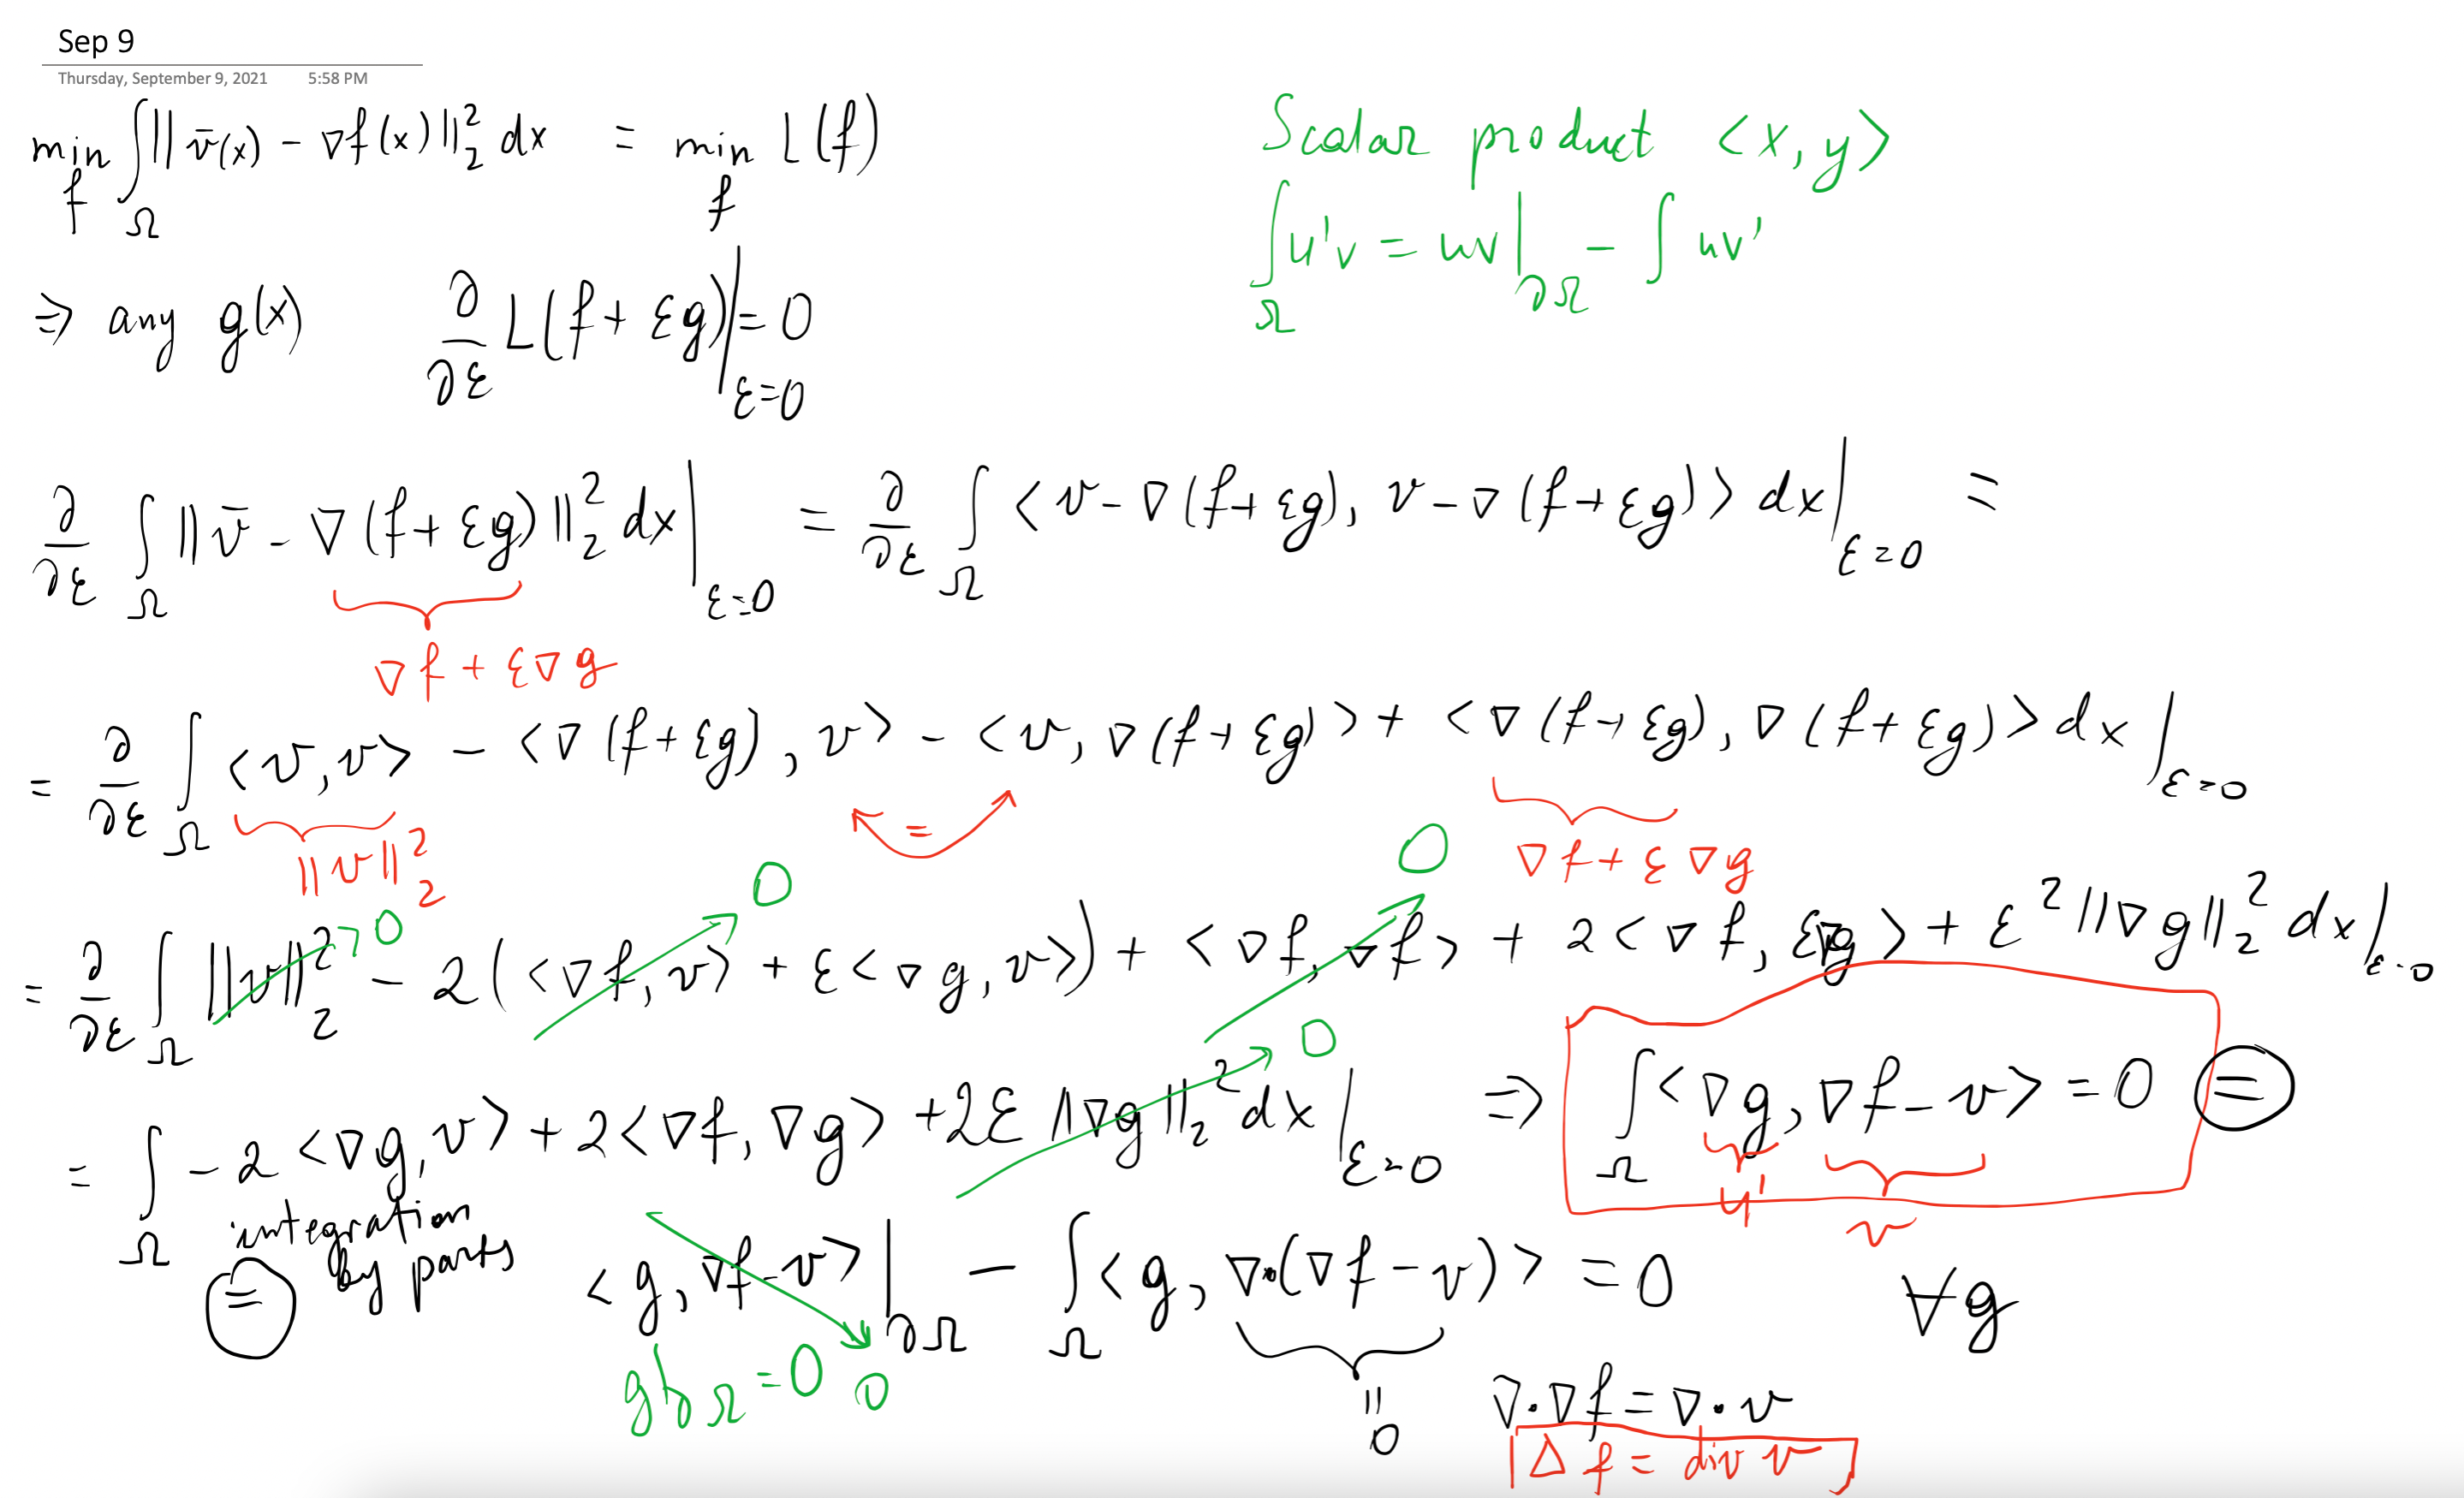 Sep 9
Thursday, September 9, 2021 5:58 PM
min_f ∫_Ω || v̄(x) - ∇f(x) ||₂² dx = min_f L(f)
Scalar product <x, y>
∫_Ω u'v = uv |_∂Ω - ∫ uv'
⇒ any g(x) ∂/∂ε L(f + εg) |_ε=0 = 0
∂/∂ε ∫_Ω || v̄ - ∇(f + εg) ||₂² dx |_ε=0 = ∂/∂ε ∫_Ω < v - ∇(f + εg), v - ∇(f + εg) > dx |_ε=0 =
∇f + ε∇g
= ∂/∂ε ∫_Ω <v, v> - <∇(f + εg), v> - <v, ∇(f + εg)> + <∇(f + εg), ∇(f + εg)> dx |_ε=0
||v||₂² = ∇f + ε∇g
= ∂/∂ε ∫_Ω ||v||₂² → 0 - 2(<∇f, v> → 0 + ε<∇g, v>) + <∇f, ∇f> → 0 + 2<∇f, ε∇g> + ε² ||∇g||₂² dx |_ε=0
= ∫_Ω -2 <∇g, v> + 2<∇f, ∇g> + 2ε ||∇g||₂² → 0 dx |_ε=0 ⇒ ∫_Ω <∇g, ∇f - v> = 0 =
u' v
= integration by parts <g, ∇f - v> |_∂Ω → 0 - ∫_Ω <g, ∇·(∇f - v)> = 0 ∀g
g|_∂Ω = 0
= 0
∇·∇f = ∇·v
Δf = div v